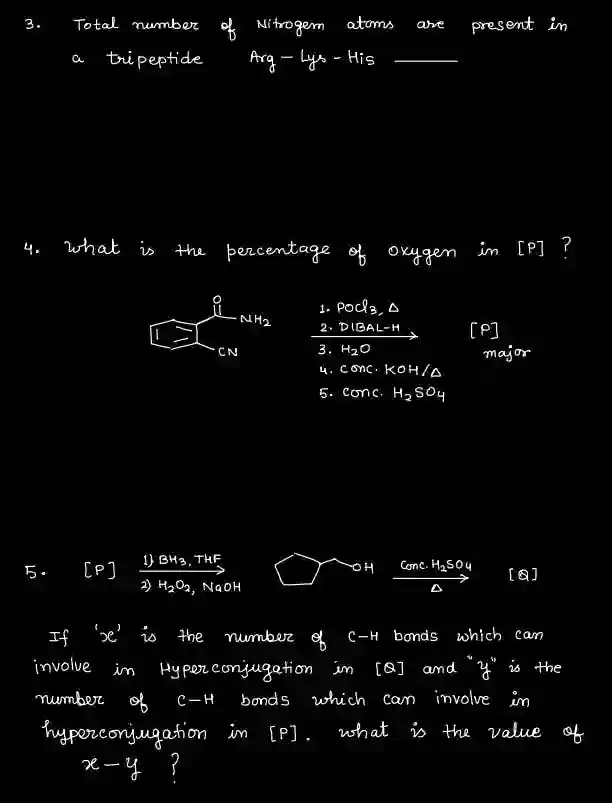 3. Total number of Nitrogen atoms are present in
a tripeptide Arg - Lys - His ______
4. What is the percentage of oxygen in [P] ?
O
NH2
CN
1. POCl3, Δ
2. DIBAL-H
3. H2O
4. conc. KOH/Δ
5. conc. H2SO4
[P]
major
5. [P] 1) BH3, THF
2) H2O2, NaOH
OH
Conc. H2SO4
Δ
[Q]
If 'x' is the number of C-H bonds which can
involve in Hyperconjugation in [Q] and "y" is the
number of C-H bonds which can involve in
hyperconjugation in [P]. what is the value of
x - y ?